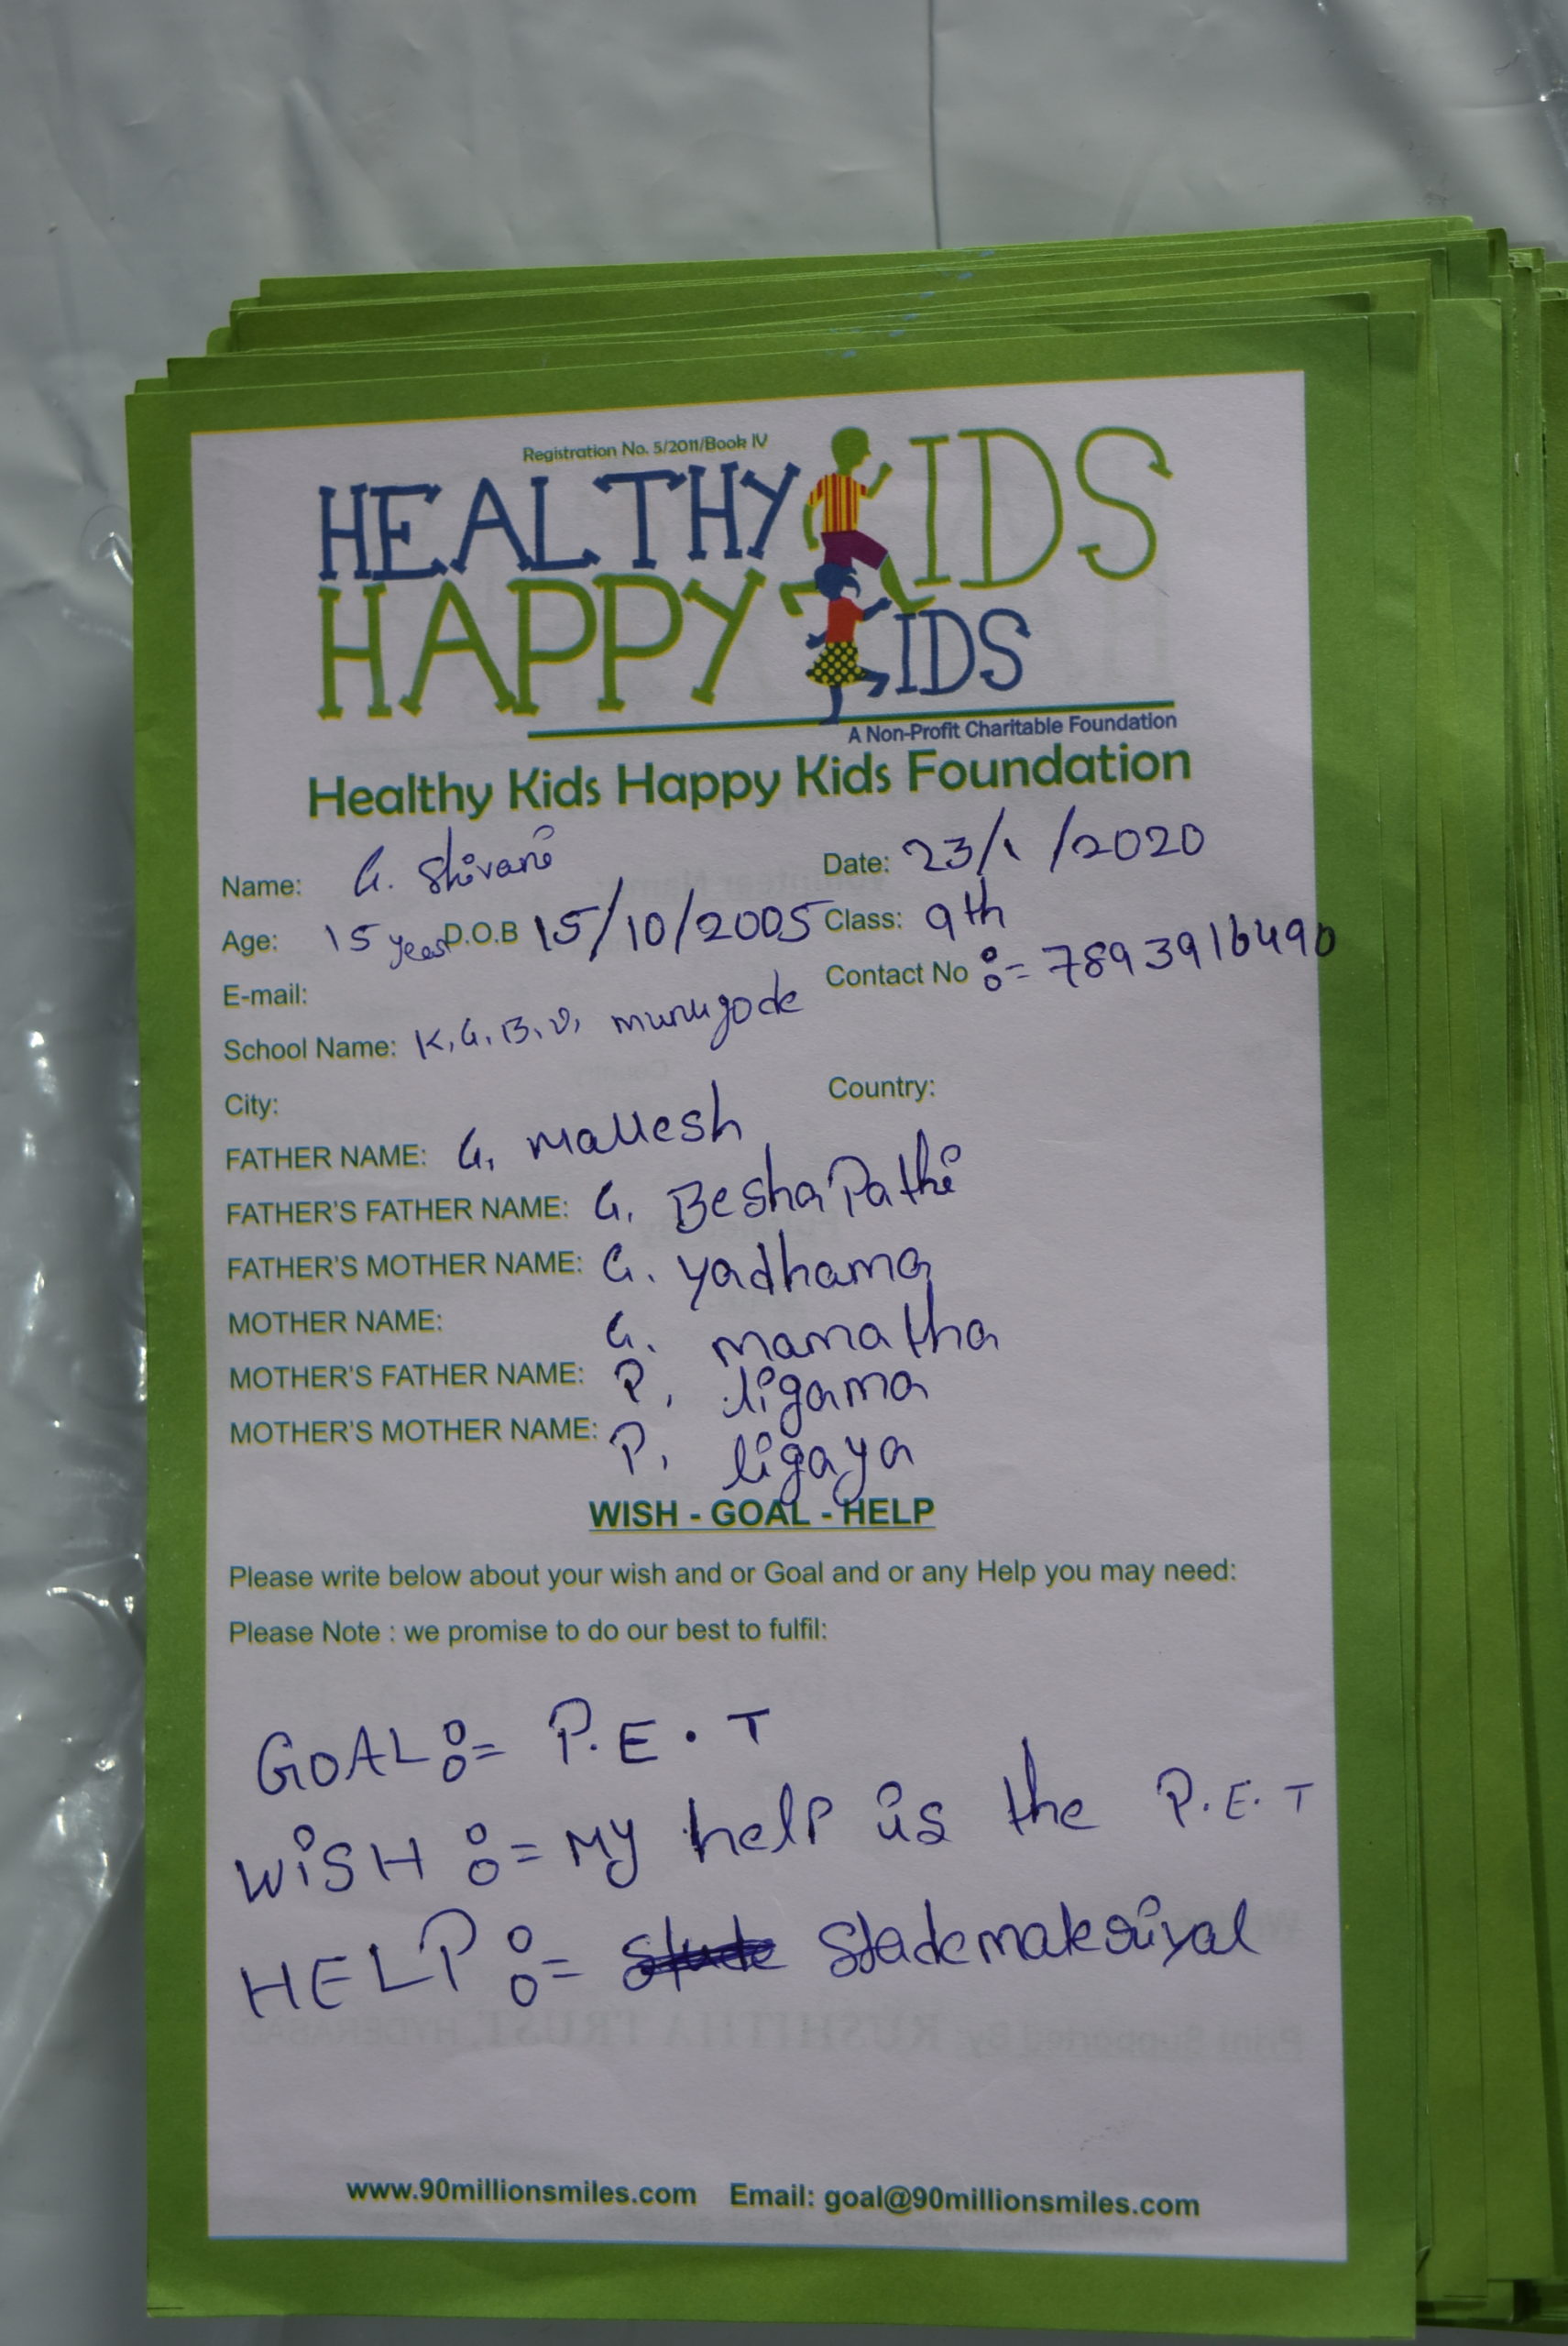 Registration No. 5/2011/Book IV
HEALTHY KIDS
HAPPY KIDS
A Non-Profit Charitable Foundation
Healthy Kids Happy Kids Foundation
Name: G. Shivani Date: 23/1/2020
Age: 15 years D.O.B 15/10/2005 Class: 9th
E-mail: Contact No := 7893916490
School Name: K.G.B.V, munugode
City: Country:
FATHER NAME: G. Mallesh
FATHER'S FATHER NAME: G. BeshaPathi
FATHER'S MOTHER NAME: G. Yadhama
MOTHER NAME: G. mamatha
MOTHER'S FATHER NAME: P. ligama
MOTHER'S MOTHER NAME: P. ligaya
WISH - GOAL - HELP
Please write below about your wish and or Goal and or any Help you may need:
Please Note : we promise to do our best to fulfil:
GOAL := P.E.T
WiSH := My help is the P.E.T
HELP :=
www.90millionsmiles.com Email: goal@90millionsmiles.com